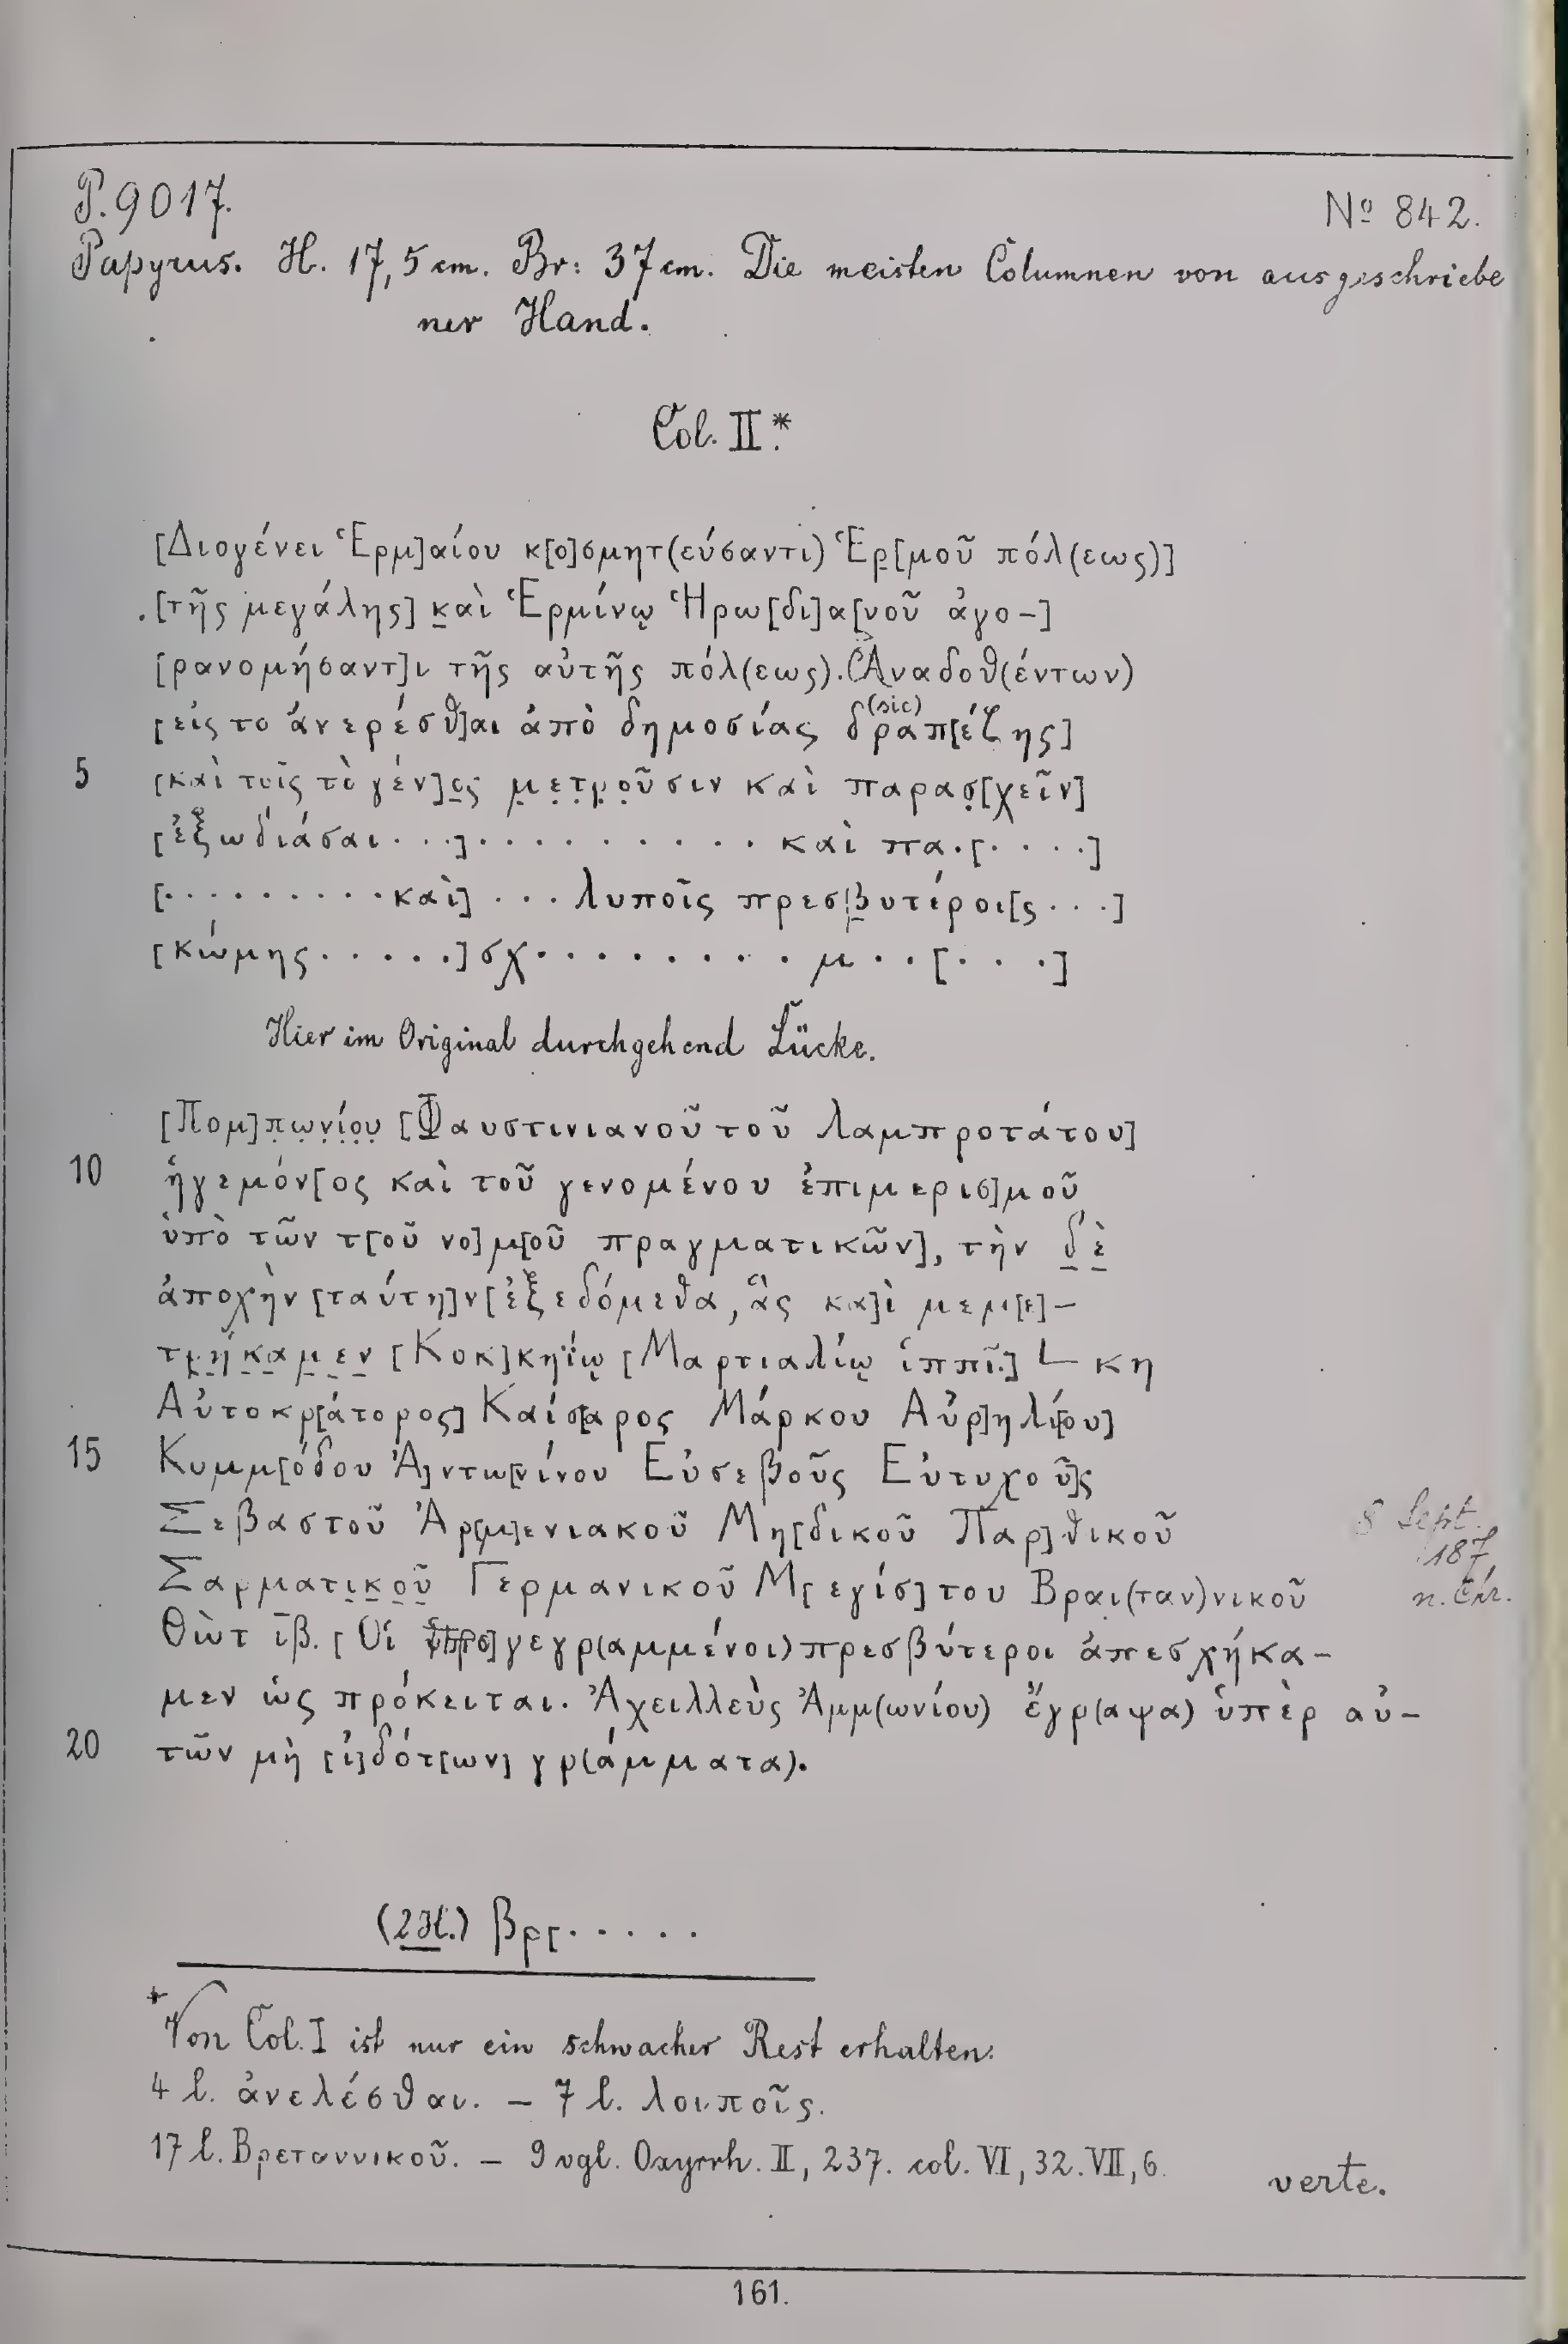 P. 9017.
Nº 842.
Papyrus. H. 17,5 cm. Br: 37 cm. Die meisten Columnen von ausgeschriebe
ner Hand.
Col. II.*
[Διογένει Ἑρμ]αίου κ[ο]σμητ(εύσαντι) Ἑρ[μοῦ πόλ(εως)]
[τῆς μεγάλης] καὶ Ἑρμίνῳ Ἡρω[δι]α[νοῦ ἀγο-]
[ρανομήσαντ]ι τῆς αὐτῆς πόλ(εως). Ἀναδοθ(έντων)
(sic)
[εἰς το ἀνερέσθ]αι ἀπὸ δημοσίας δραπ[έζης]
5 [καὶ τοῖς τὸ γέν]ος μ̣ε̣τ̣ρ̣ο̣ῦσιν καὶ παρασ̣[χεῖν]
[ἐξωδιάσαι · · ·] · · · · · · · · · · καὶ πα · [· · · ·]
[· · · · · · · · · καὶ] · · · λυποῖς πρεσβυτέροι[ς · · ·]
[κώμης · · · · ·] σχ · · · · · · · · · μ · · [· · ·]
Hier im Original durchgehend Lücke.
[Πομ]π̣ω̣ν̣ί̣ο̣υ̣ [Φαυστινιανοῦ τοῦ λαμπροτάτου]
10 ἡγεμόν[ος καὶ τοῦ γενομένου ἐπιμερισ]μοῦ
ὑπὸ τῶν τ[οῦ νο]μ[οῦ πραγματικῶν], τὴν δὲ
ἀποχὴν [ταύτη]ν [ἐξεδόμεθα, ἃς κα]ὶ μεμ[ε]-
τρήκαμεν [Κοκ]κηΐῳ [Μαρτιαλίῳ ἱππῖ.] L κη
Αὐτοκρ[άτορος] Καίσ[α]ρος Μάρκου Αὐρ]ηλί[ου]
15 Κυμμ[όδου Ἀ]ντω[νίνου Εὐσεβοῦς Εὐτυχοῦ]ς
Σεβαστοῦ Ἀρ[μ]ενιακοῦ Μη[δικοῦ Παρ]θικοῦ
8 Sept.
187
n. Chr.
Σαρματικοῦ Γερμανικοῦ Μ[εγίσ]του Βραι(ταν)νικοῦ
Θὼτ ῑβ̄. [Οἱ προ]γεγρ(αμμένοι) πρεσβύτεροι ἀπεσχήκα-
μεν ὡς πρόκειται. Ἀχειλλεὺς Ἀμμ(ωνίου) ἔγρ(αψα) ὑπὲρ αὐ-
20 τῶν μὴ [ἰ]δότ[ων] γρ(άμματα).
(2 H.) βρ[· · · · ·
*Von Col. I ist nur ein schwacher Rest erhalten.
4 l. ἀνελέσθαι. — 7 l. λοιποῖς.
17 l. Βρεταννικοῦ. — 9 vgl. Oxyrrh. II, 237. col. VI, 32. VII, 6.
verte.
161.